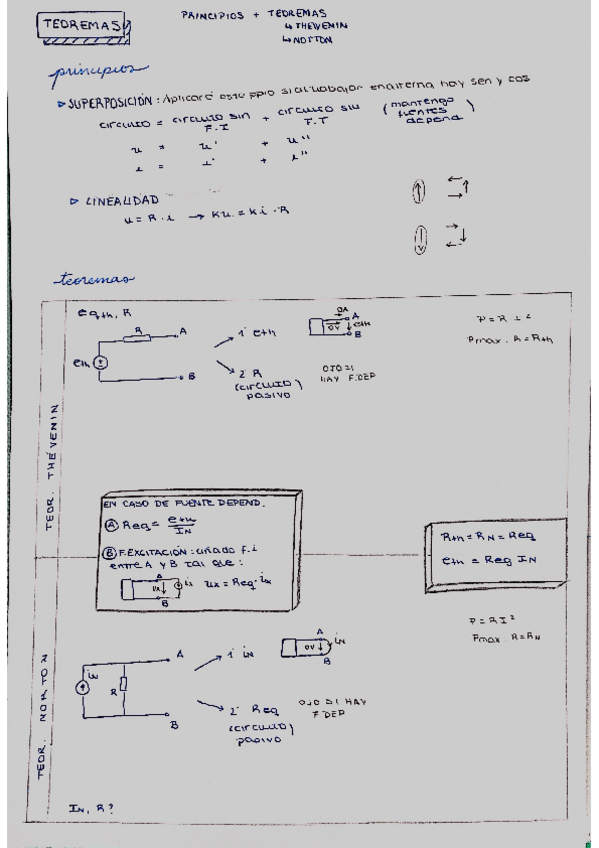 TEOREMAS
PRINCIPIOS + TEOREMAS
↳ THEVENIN
↳ NORTON
principios
▷ SUPERPOSICIÓN: Aplicaré este ppio si al trabajar en alterna, hay sen y cos
circuito = circuito sin F.I + circuito sin F.T (mantengo fuentes depend)
u = u' + u''
i = i' + i''
▷ LINEALIDAD
u = R · i → Ku = Ki · R
teoremas
TEOR. THÉVENIN
eqth, R
R
A
eth
B
1º eth
0A
A
0V
eth
B
2º R
(circuito pasivo)
OJO SI
HAY F.DEP
P = R I²
Pmax: R = Rth
EN CASO DE FUENTE DEPEND.
Ⓐ Req = eth / IN
Ⓑ F.EXCITACIÓN: añado f.i
entre A y B tal que:
A
ux
ix
B
ux = Req · ix
Rth = RN = Req
eth = Req IN
TEOR. NORTON
iN
R
A
B
1º iN
A
0V
iN
B
2º Req
(circuito pasivo)
OJO SI HAY
F.DEP
P = R I²
Pmax: R = RN
IN, R?